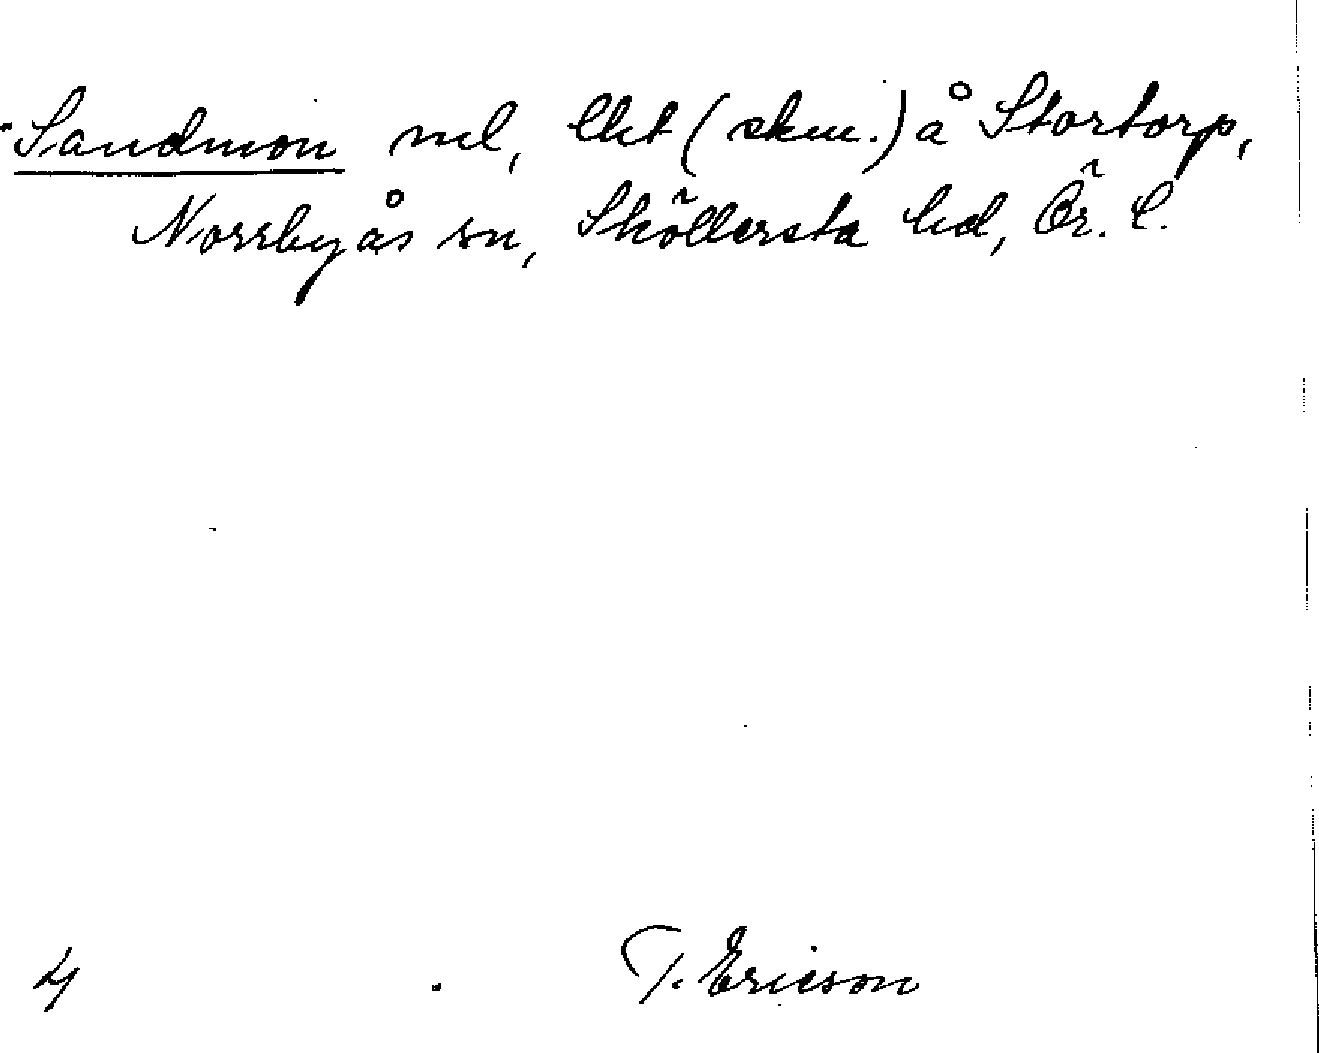 Sandmon nul, lht (skm.) å Stortorp,
Norrbyås sn, Sköllersta hd, Ör. l.
4 T. Ericson